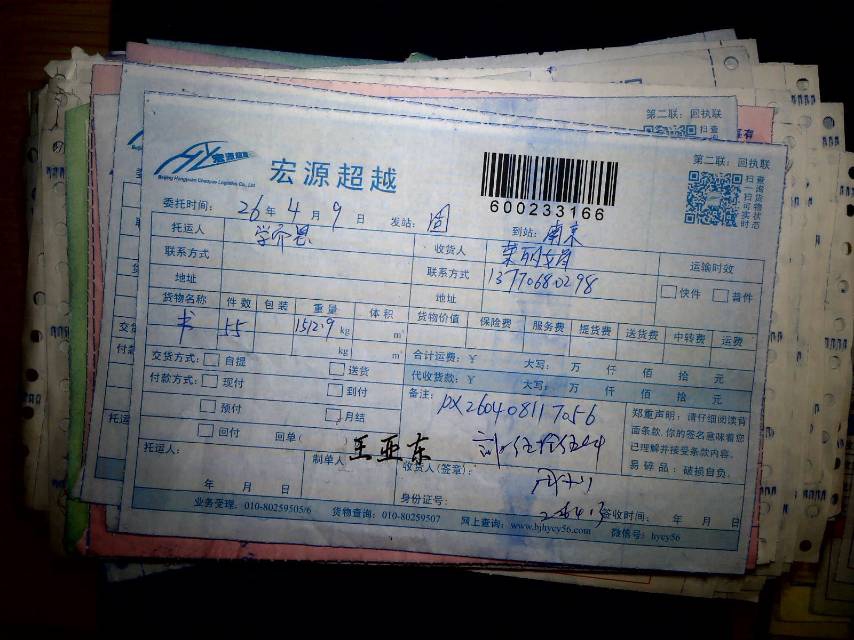 第二联：回执联
宏源超越
Beijing Hongyuan Chaoyue Logistics Co., Ltd
600233166
第二联：回执联
扫一扫
查询货物
可实时状态
委托时间：26年4月9日 发站： 到站：南京
托运人 收货人 运输时效
联系方式 联系方式 13770680298 快件 普件
地址 地址
货物名称 件数 包装 重量 体积 货物价值 保险费 服务费 提货费 送货费 中转费 运费
书 55 1512.9 kg m³
kg m³
交货方式： 自提 送货 合计运费：￥ 大写： 万 仟 佰 拾 元
付款方式： 现付 到付 代收货款：￥ 大写： 万 仟 佰 拾 元
预付 月结 备注：PX260408117056
回付 回单（ ）
郑重声明：请仔细阅读背
面条款，你的签名意味着您
已理解并接受条款内容。
易碎品：破损自负。
托运人： 制单人 王亚东 收货人（签章）：
年 月 日 身份证号： 签收时间： 年 月 日
业务受理：010-80259505/6 货物查询：010-80259507 网上查询：www.bjhycy56.com 微信号：hycy56